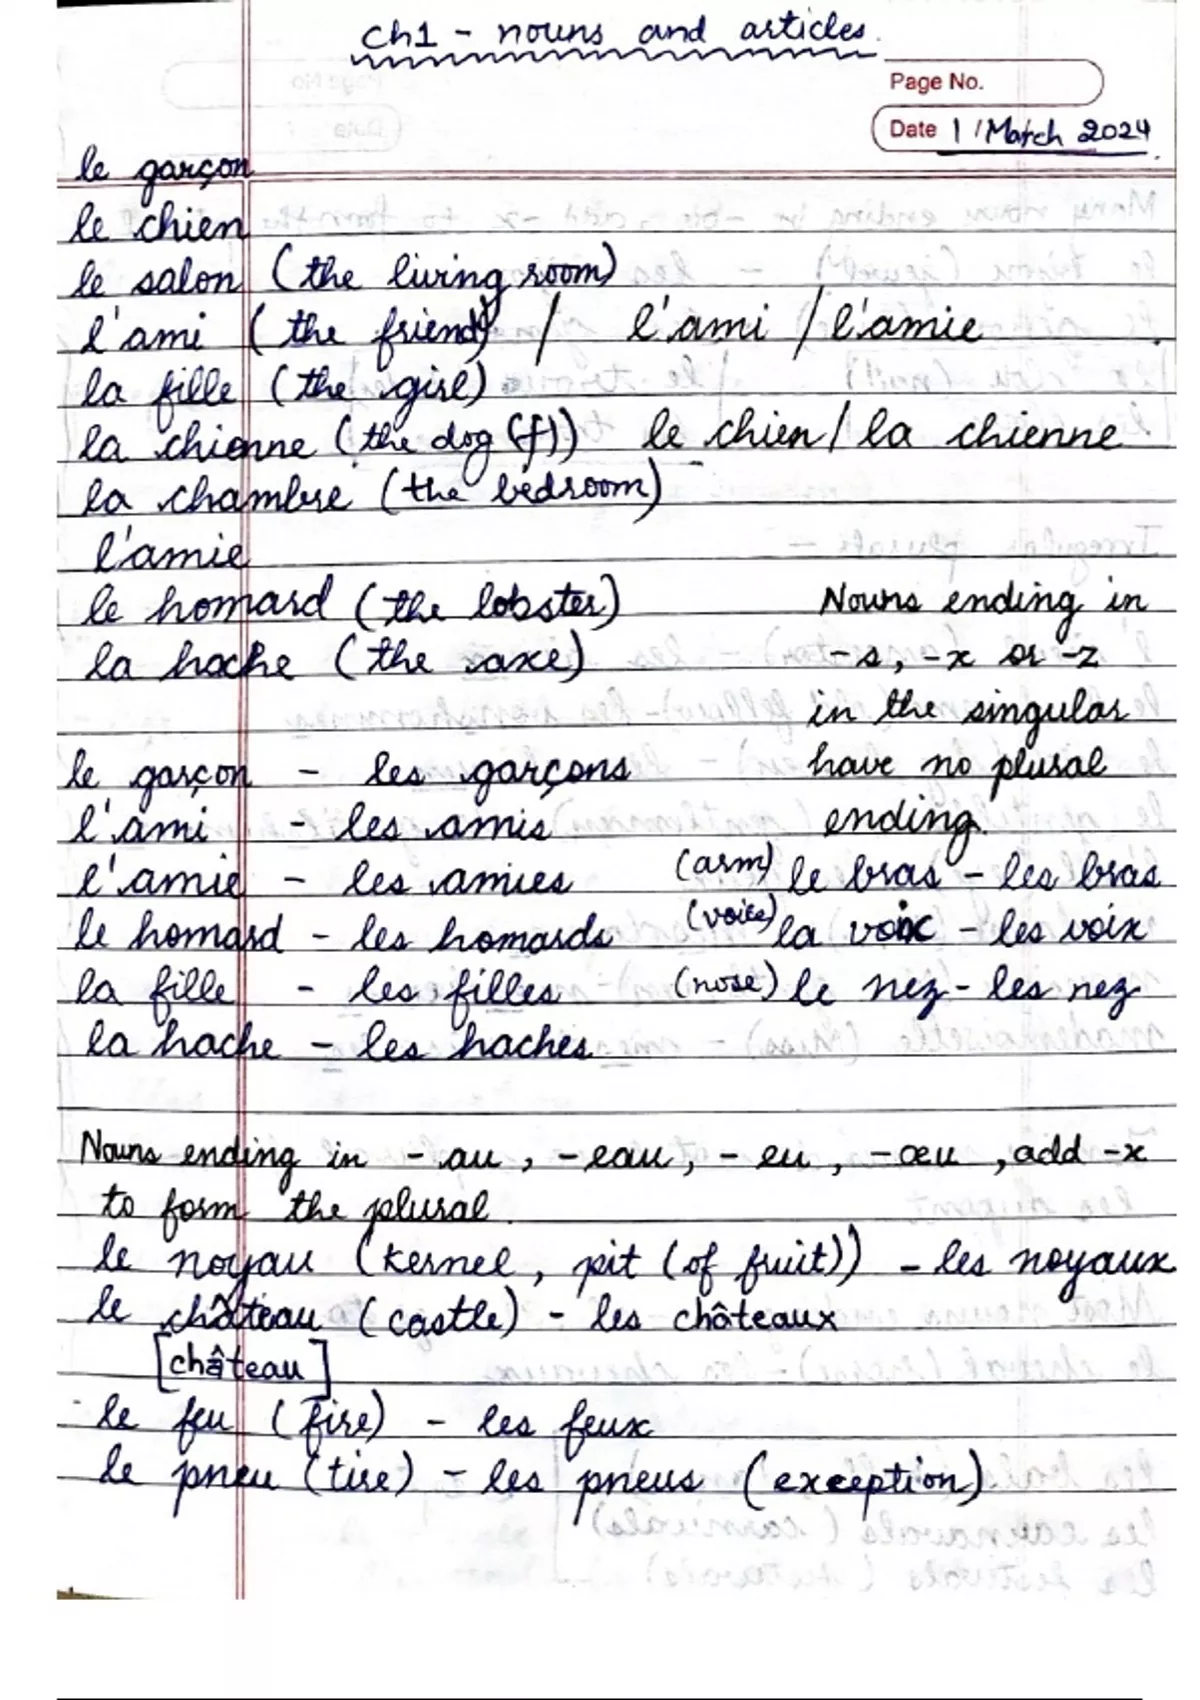 Ch1 - nouns and articles.
Page No.
Date 1/March 2024
le garçon
le chien
le salon (the living room)
l'ami (the friend) / l'ami / l'amie
la fille (the girl)
la chienne (the dog (f)) le chien / la chienne
la chambre (the bedroom)
l'amie
le homard (the lobster) Nouns ending in
la hache (the axe) -s, -x or -z
in the singular
le garçon - les garçons have no plural
l'ami - les amis ending.
l'amie - les amies (arm) le bras - les bras
le homard - les homards (voice) la voix - les voix
la fille - les filles (nose) le nez - les nez
la hache - les haches
Nouns ending in -au, -eau, -eu, -œu, add -x
to form the plural.
le noyau (kernel, pit (of fruit)) - les noyaux
le château (castle) - les châteaux
[château]
le feu (fire) - les feux
le pneu (tire) - les pneus (exception)